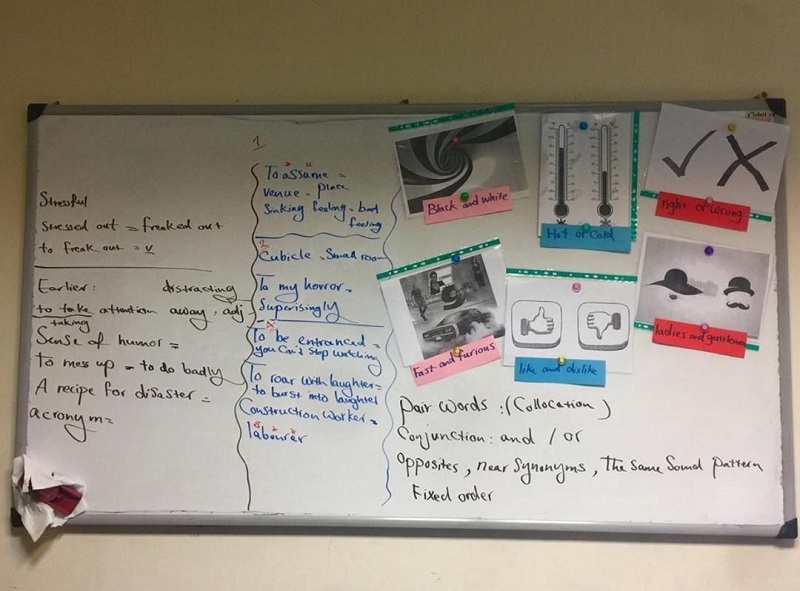 Stressful
stressed out = freaked out
to freak out = v
Earlier: distracting
to take attention away. adj
taking
Sense of humor =
To mess up = to do badly
A recipe for disaster =
acronym =
1
To assume =
venue - place
Sinking feeling - bad
feeling
2
Cubicle = Small room
To my horror =
Superisingly
To be entranced =
you can't stop watching
To roar with laughter =
to burst into laughter
Construction Worker =
labourer
Black and white
Hot or cold
right or wrong
Fast and furious
like and dislike
ladies and gentlemen
pair words: (Collocation)
Conjunction: and / or
opposites, near Synonyms, The same Sound pattern
Fixed order